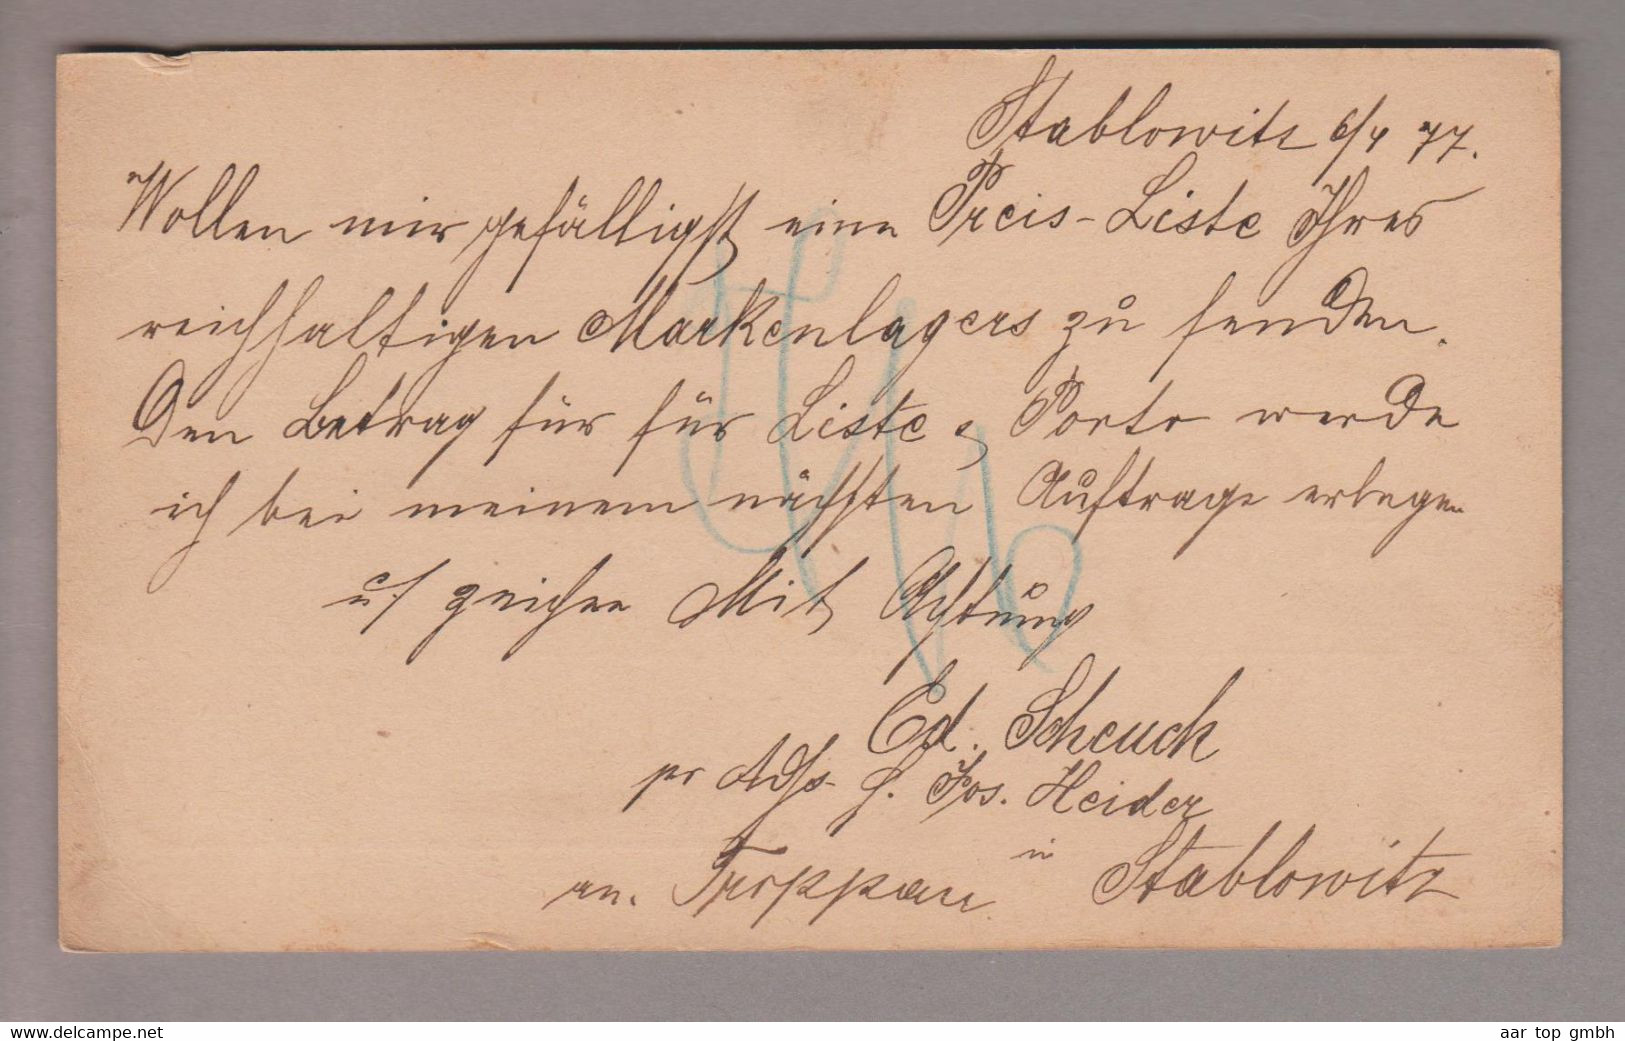 Stablowitz 6/4 77.
Wollen mir gefälligst eine Preis-Liste Ihres
reichhaltigen Markenlagers zu senden.
Den Betrag für für Liste & Porto werde
ich bei meinem nächsten Auftrage erlegen
u/ zeichne Mit Achtung
Ed. Scheuch
pr Adß. H. Jos. Heider
in
an. Troppau Stablowitz
www.delcampe.net
aar top gmbh